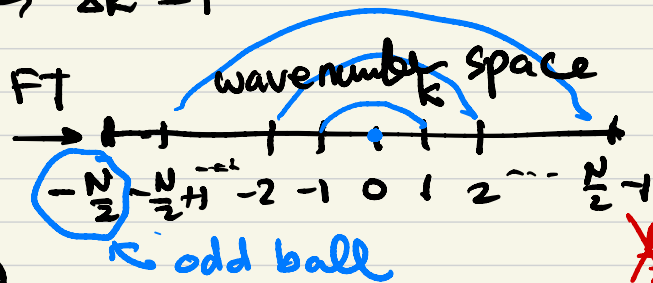 Δk = 1
FT
wavenumber space
k
-N/2 -N/2+1 ... -2 -1 0 1 2 ... N/2-1
odd ball